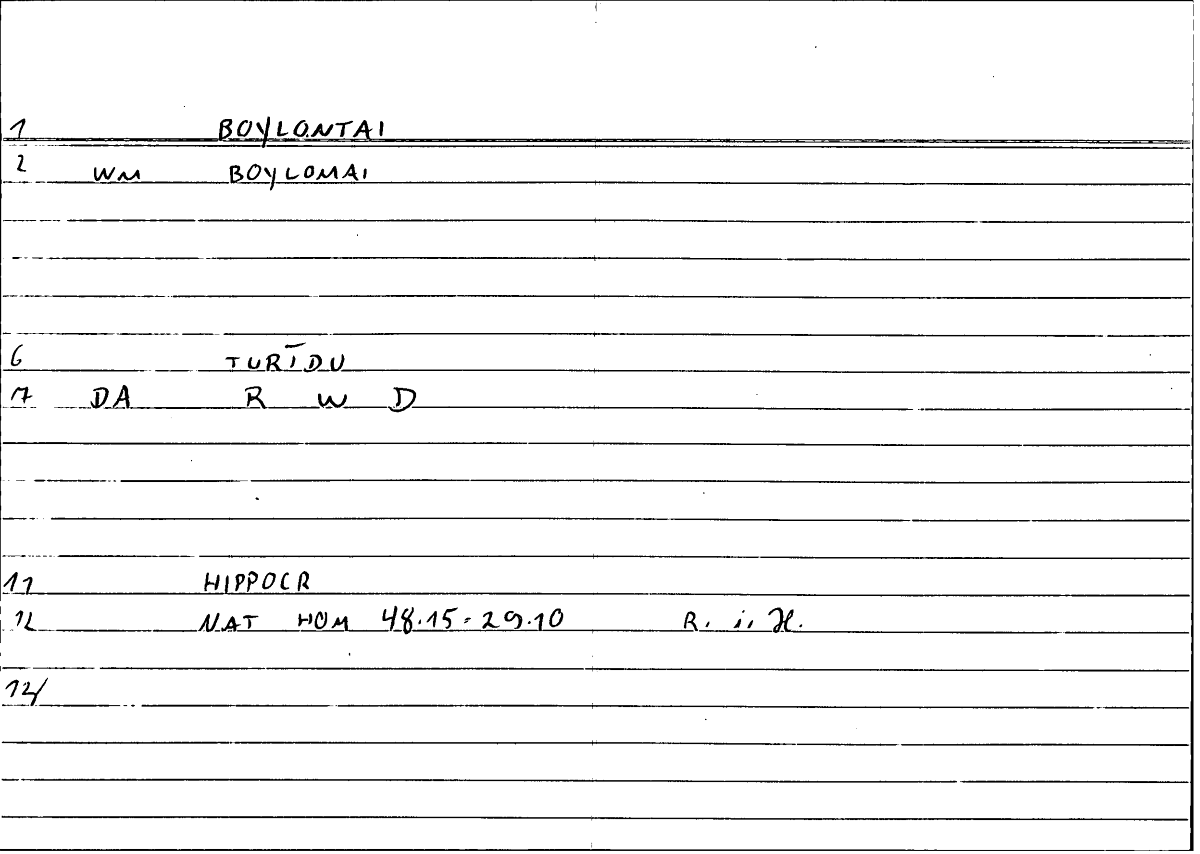 1 BOYLONTAI
2 WM BOYLOMAI
6 TURĪDU
7 DA R W D
11 HIPPOCR
12 NAT HOM 48.15-29.10 R. i. H.
12/